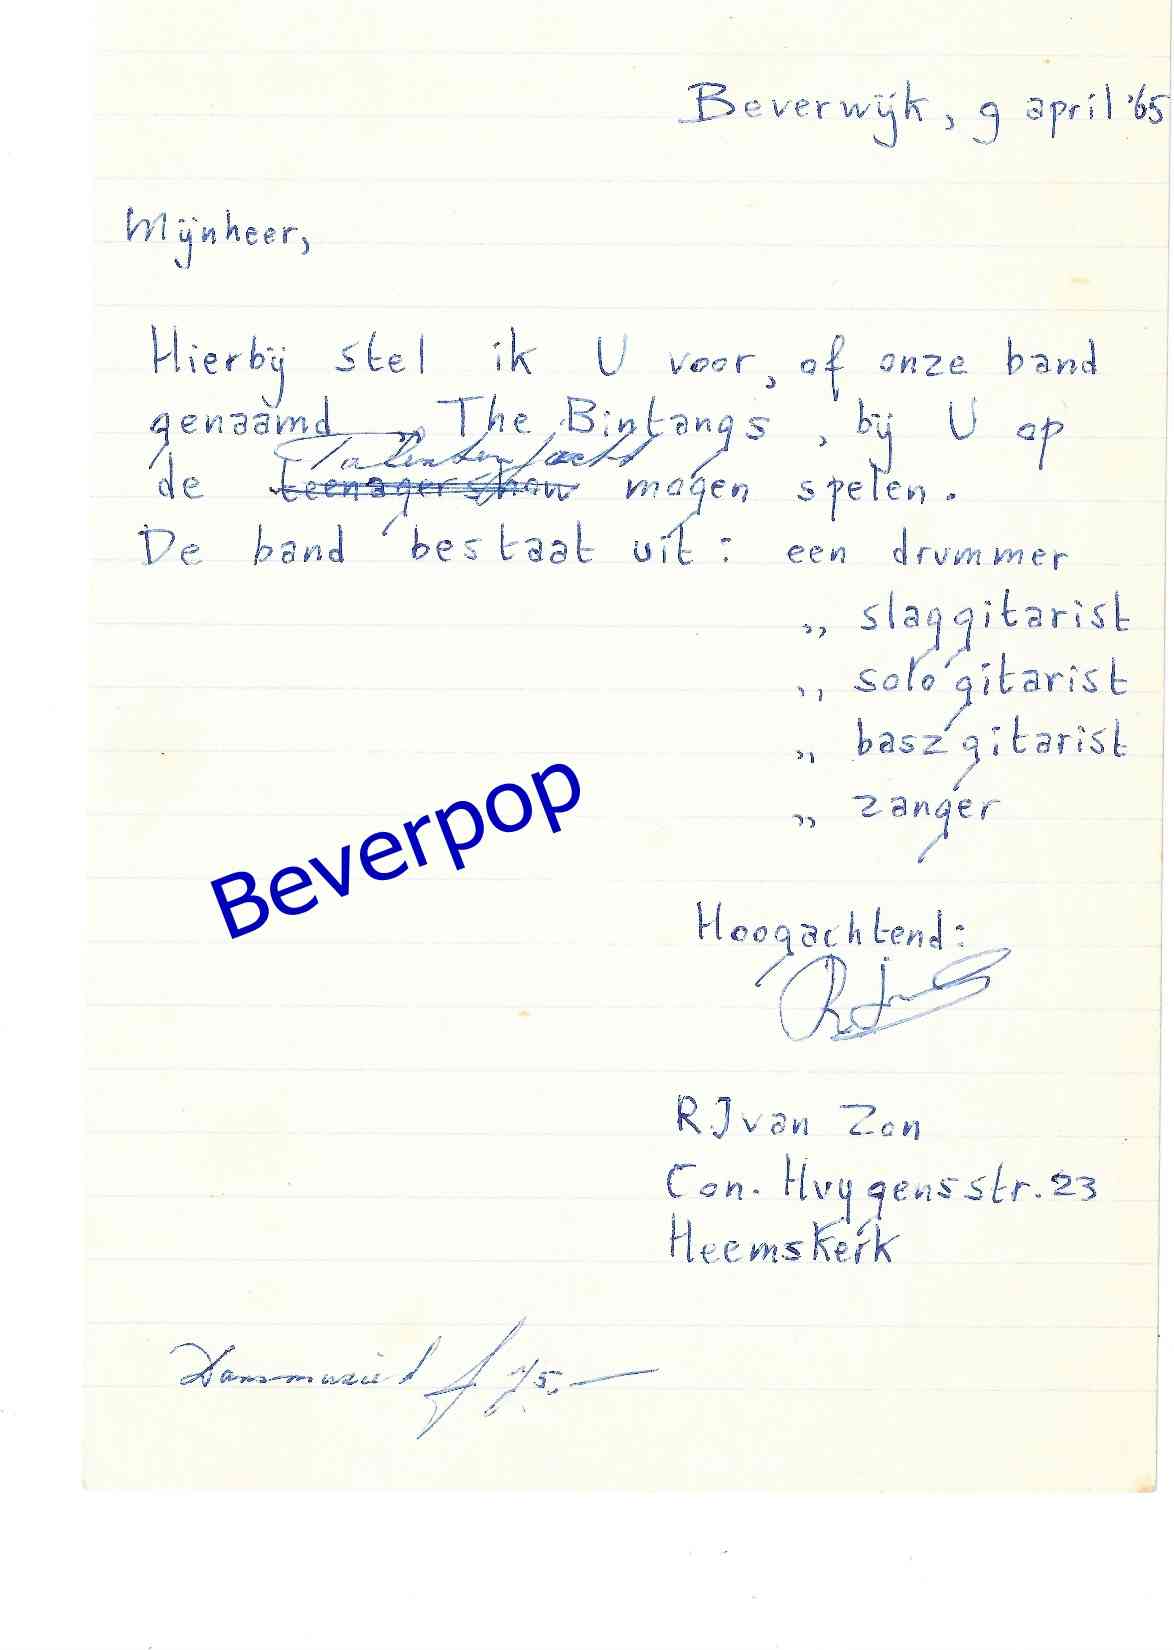 Beverwijk, 9 april '65
Mijnheer,
Hierbij stel ik U voor, of onze band
genaamd „ The Bintangs , bij U op
Talentenjacht
de teenagershow mogen spelen.
De band bestaat uit: een drummer
„ slaggitarist
„ sologitarist
„ baszgitarist
„ zanger
Beverpop
Hoogachtend:
R.J van Zon
Con. Huygensstr. 23
Heemskerk
Dansmuziek f 75,—